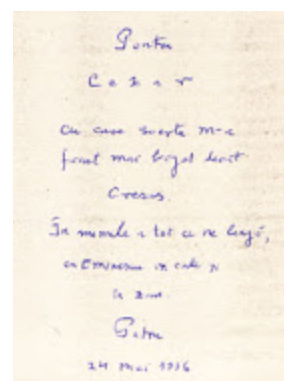 Pentru
Cezar
cu care soarta m-a
făcut mai bogat decît
Cresus.
În numele a tot ce ne leagă,
cu Eminescu in
Petru
24 Mai 1996